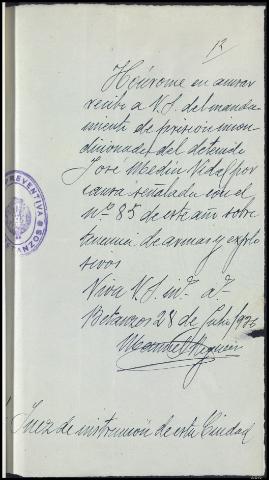 12
Hónrome en acusar
recibo a V.S. del manda-
miento de prisión incon-
dicionada del detenido
José Medín Vidal por
causa señalada con el
nº 85 de este año sobre
tenencia de armas y explo-
sivos
Viva V.S. m.s a.s
Betanzos 28 de Julio 1936
Manuel
PREVENTIVA
BETANZOS
Juez de instrucción de esta Ciudad